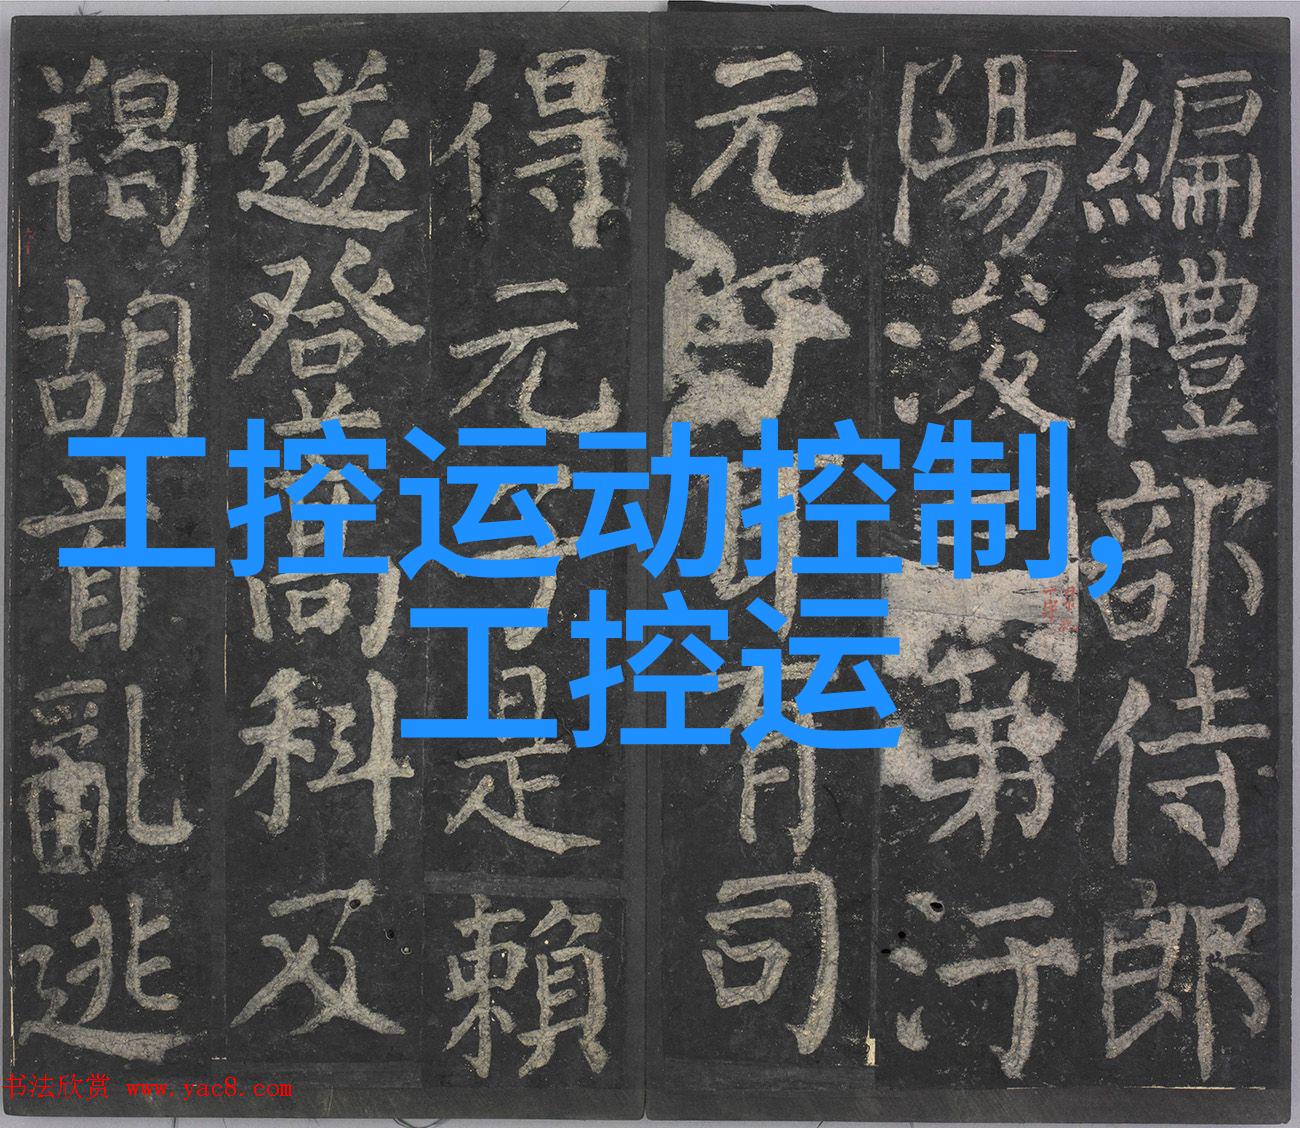 編禮部侍郎
陽浚第汙
元子耳有司
得元子是賴
遂登高科及
羯胡首亂逃
工控运动控制,
工控运
书法欣赏 www.yac8.com